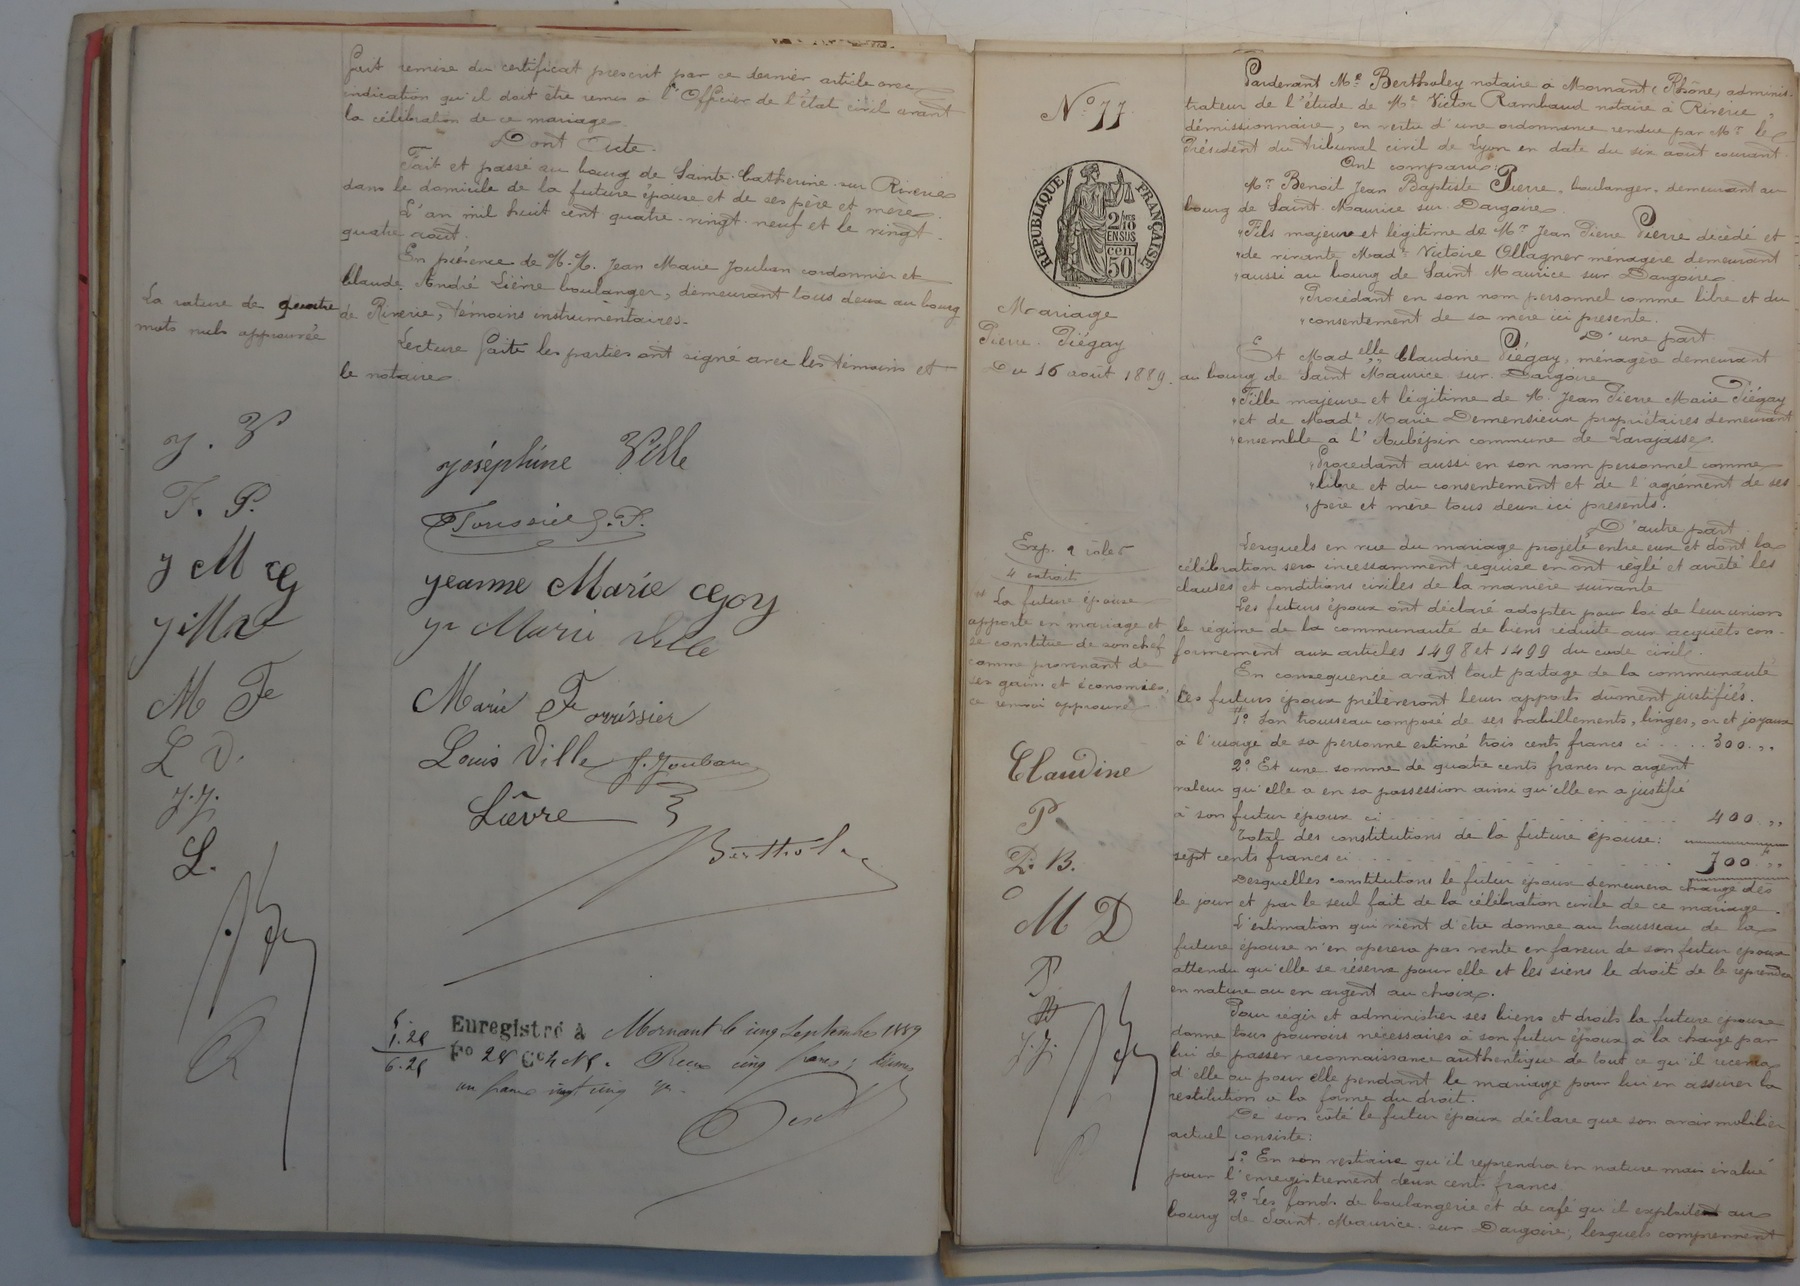 fait remise du certificat prescrit par ce dernier article avec
indication qu'il doit être remis à l'Officier de l'état civil avant
la célébration de ce mariage
Dont Acte.
Fait et passé au bourg de Sainte-Catherine-sur-Riverie
dans le domicile de la future épouse et de ses père et mère.
L'an mil huit cent quatre-vingt-neuf et le vingt-
quatre août.
En présence de M.M. Jean Marie Jouban cordonnier et
Claude André Lièvre boulanger, demeurant tous deux au bourg
de Riverie, témoins instrumentaires.
La rature de quatre
mots nuls approuvée
Lecture faite les parties ont signé avec les témoins et
le notaire.
J. V
F. P.
J M G
M F
L V.
J.J.
L.
Joséphine Ville
Jeanne Marie Goy
Marie Ville
Marie
Louis Ville J. Jouban
Lièvre
5.
1.25
6.25
Enregistré à Mornant le cinq Septembre 1889
Fo 28 Co 4 Reçu cinq francs; décimes
un franc vingt cinq
No 77
REPUBLIQUE FRANÇAISE
2/10 EN SUS
50 CEN
Mariage
Pierre - Piégay
Du 16 août 1889.
Exp. 9 rôles
4 extraits
La future épouse
apporte en mariage et
se constitue de son chef
comme provenant de
ses gains et économies,
ce renvoi approuvé
Claudine
P
P. B.
M D
P
J.J.
Pardevant Me Bertholey notaire à Mornant (Rhône) adminis-
trateur de l'étude de Me Victor Rambaud notaire à Riverie,
démissionnaire, en vertu d'une ordonnance rendue par Mr le
Président du tribunal civil de Lyon en date du six août courant.
Ont comparu:
Mr Benoit Jean Baptiste Pierre, boulanger, demeurant au
bourg de Saint-Maurice-sur-Dargoire
Fils majeur et légitime de Mr Jean Pierre Pierre décédé et
de vivante Made Victoire Ollagner ménagère demeurant
aussi au bourg de Saint Maurice sur Dargoire
Procédant en son nom personnel comme libre et du
consentement de sa mère ici présente.
D'une part
Et Madelle Claudine Piégay, ménagère demeurant
au bourg de Saint Maurice sur Dargoire
Fille majeure et légitime de M. Jean Pierre Marie Piégay
et de Made Marie Demensieux propriétaires demeurant
ensemble à l'Aubépin commune de Larajasse.
Procédant aussi en son nom personnel comme
libre et du consentement et de l'agrément de ses
père et mère tous deux ici présents.
D'autre part
Lesquels en vue du mariage projeté entre eux et dont la
célébration sera incessamment requise en ont réglé et arrêté les
clauses et conditions civiles de la manière suivante
Les futurs époux ont déclaré adopter pour loi de leur union
le régime de la communauté de biens réduite aux acquêts con-
formément aux articles 1498 et 1499 du code civil.
En conséquence avant tout partage de la communauté
les futurs époux prélèveront leurs apports dûment justifiés.
1o Son trousseau composé de ses habillements, linges, or et joyaux
à l'usage de sa personne estimé trois cents francs ci .... 300.,,
2o Et une somme de quatre cents francs en argent
valeur qu'elle a en sa possession ainsi qu'elle en a justifié
à son futur époux ci ........ 400 ,,
Total des constitutions de la future épouse:
sept cents francs ci ........ 700 ,,
Desquelles constitutions le futur époux demeurera chargé dès
le jour et par le seul fait de la célébration civile de ce mariage.
L'estimation qui vient d'être donnée au trousseau de la
future épouse n'en opérera pas vente en faveur de son futur époux
attendu qu'elle se réserve pour elle et les siens le droit de le reprendre
en nature ou en argent au choix.
Pour régir et administrer ses biens et droits la future épouse
donne tous pouvoirs nécessaires à son futur époux à la charge par
lui de passer reconnaissance authentique de tout ce qu'il recevra
d'elle ou pour elle pendant le mariage pour lui en assurer la
restitution à la forme du droit.
De son côté le futur époux déclare que son avoir mobilier
actuel consiste:
1o En son vestiaire qu'il reprendra en nature mais évalué
pour l'enregistrement deux cents francs
2o Les fonds de boulangerie et de café qu'il exploite au
bourg de Saint-Maurice-sur-Dargoire, lesquels comprennent